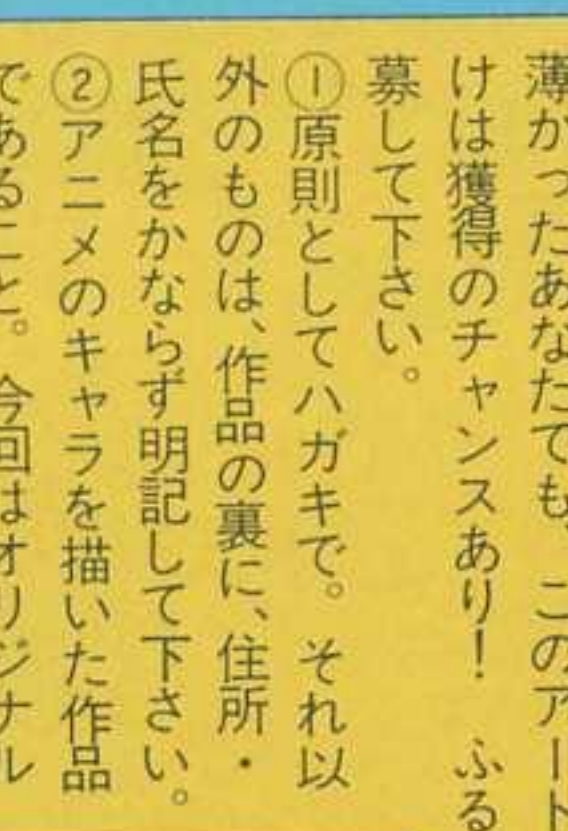 薄かったあなたでも、このアート
けは獲得のチャンスあり！　ふる
募して下さい。
①原則としてハガキで。それ以
外のものは、作品の裏に、住所・
氏名をかならず明記して下さい。
②アニメのキャラを描いた作品
であること。今回はオリジナル